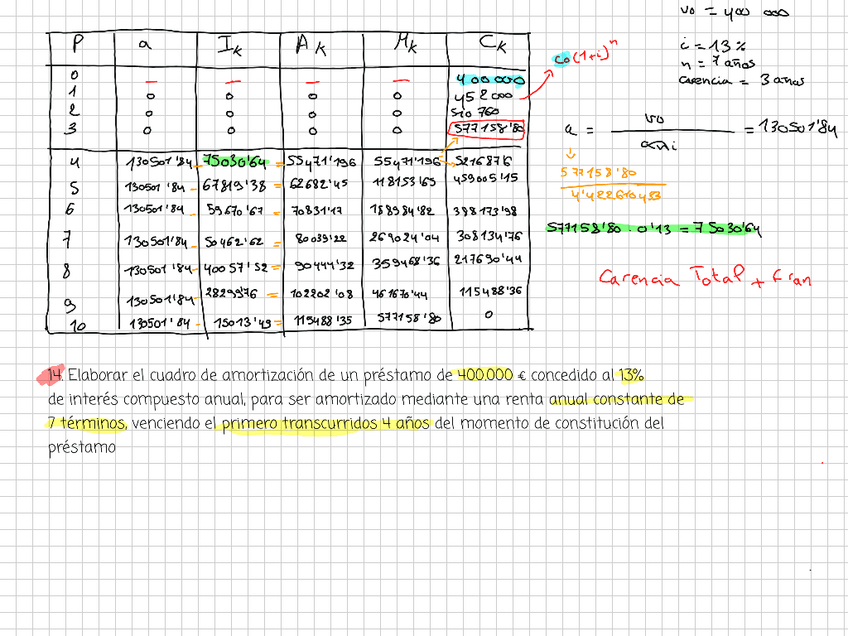 V0 = 400 000
i = 13 %
n = 7 años
carencia = 3 años
P a Ik Ak Mk Ck
0 — — — — 400 000
1 0 0 0 0 452 000
2 0 0 0 0 510 760
3 0 0 0 0 577158'80
4 130501'84 - 75030'64 = 55471'196 55471'196 521687'6
5 130501'84 - 67819'38 = 62682'45 118153'65 459005'15
6 130501'84 - 59670'67 = 70831'17 188984'82 388173'98
7 130501'84 - 50462'62 = 80039'22 269024'04 308134'76
8 130501'84 - 40057'52 = 90444'32 359468'36 217690'44
9 130501'84 - 28299'76 = 102202'08 461670'44 115488'36
10 130501'84 - 15013'49 = 115488'35 577158'80 0
C0(1+i)^n
a = V0 / an¬i = 130501'84
577158'80
4'422610433
577158'80 · 0'13 = 75030'64
Carencia Total + Fran
14. Elaborar el cuadro de amortización de un préstamo de 400.000 € concedido al 13%
de interés compuesto anual, para ser amortizado mediante una renta anual constante de
7 términos, venciendo el primero transcurridos 4 años del momento de constitución del
préstamo